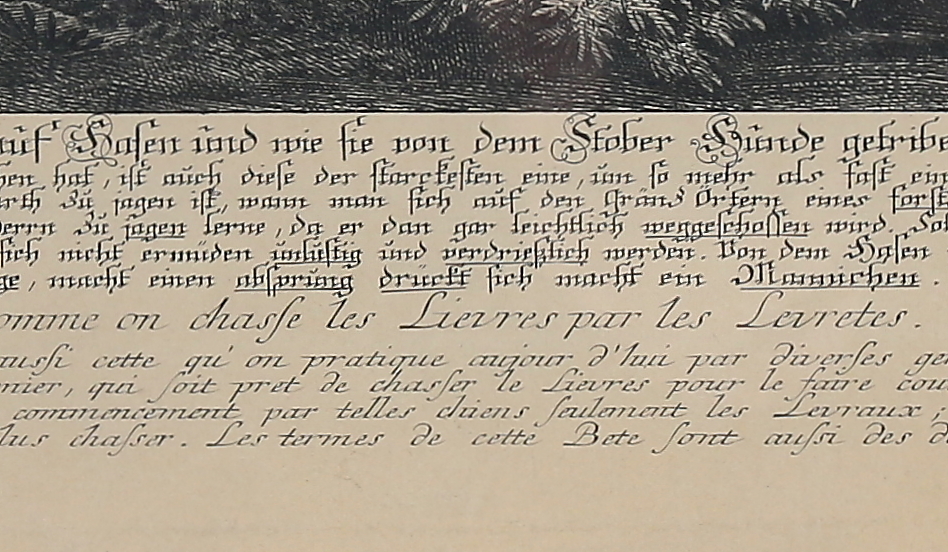 auf Hasen und wie sie von dem Stöber Hunde getribe
hat, ist auch diese der starckesten eine, um so mehr als fast ein
zu jagen ist, wann man sich auf den Gränd Örtern eines forst
zu jagen lerne, da er dan gar leichtlich weggeschossen wird.
sich nicht ermüden unlustig und verdrießlich werden. Von dem Hasen
ge, macht einen absprung drückt sich macht ein Mannichen.
omme on chasse les Lievres par les Levretes.
aussi cette qu'on pratique aujour d'hui par diverses ge
nier, qui soit pret de chasser le Lievres pour le faire cou
commencement par telles chiens seulement les Levraux,
lus chasser. Les termes de cette Bete sont aussi des d